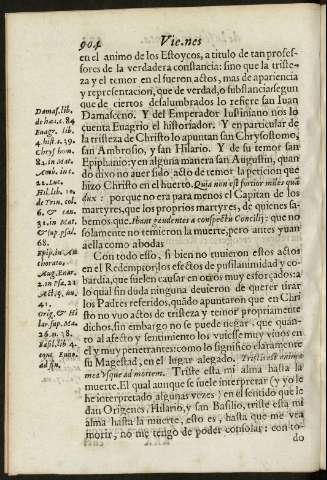 904 Viernes
en el animo de los Estoycos, a titulo de tan profes-
sores de la verdadera constancia: sino que la triste-
za y el temor en el fueron actos, mas de apariencia
y representacion, que de verdad, o substancia segun
que de ciertos deslumbrados lo refiere san Iuan
Damasceno. Y del Emperador Iustiniano nos lo
cuenta Euagrio el historiador. Y en particular de
la tristeza de Christo lo apuntan san Chrysostomo,
san Ambrosio, y san Hilario. Y de su temor san
Epiphanio: y en alguna manera san Augustin, quan
do dixo no auer sido acto de temor la peticion que
hizo Christo en el huerto. Quia non est fortior miles quã
dux: porque no era para menos el Capitan de los
martyres, que los proprios martyres, de quienes sa-
bemos, que Ibant gaudentes a conspectu Concilij: que no
solamente no temieron la muerte, pero antes yuan
a ella como a bodas
Con todo esso, si bien no tuuieron estos actos
en el Redemptor, los efectos de pusilanimidad y co-
bardia, que suelen causar en otros muy esforçados: a
lo qual sin duda ninguna deuieron de querer tirar
los Padres referidos, quãdo apuntaron que en Chri
sto no vuo actos de tristeza y temor propriamente
dichos, sin embargo no se puede negar, que quan-
to al afecto y sentimiento los vuiesse muy viuos en
el, y muy penetrantes: como lo significò claramente
su Magestad, en el lugar alegado. Tristis est anima
mea vsque ad mortem. Triste esta mi alma hasta la
muerte. El qual aunque se suele interpretar (y yo le
he interpretado algunas vezes) en el sentido que le
dan Origenes, Hilario, y san Basilio, triste esta mi
alma hasta la muerte, esto es, hasta que me vea
morir, no me tengo de poder consolar: con to-
do
Damas. lib.
de hæres. 84
Euagr. lib.
4 hist. c. 39.
Chrys. hom.
82. in Mat.
Amb. in c.
22. Luc.
Hil. lib. 10.
de Trin. col.
6. & can.
31. in Mat.
& sup. psal.
68.
Epip. in An
chorato.
Aug. Enar.
2. in Psa. 21
Act. 5. nu.
41.
Orig. & Hi
lar. sup. Ma.
26. n. 38.
Basil. lib. 4.
cont. Euno.
ad fin.